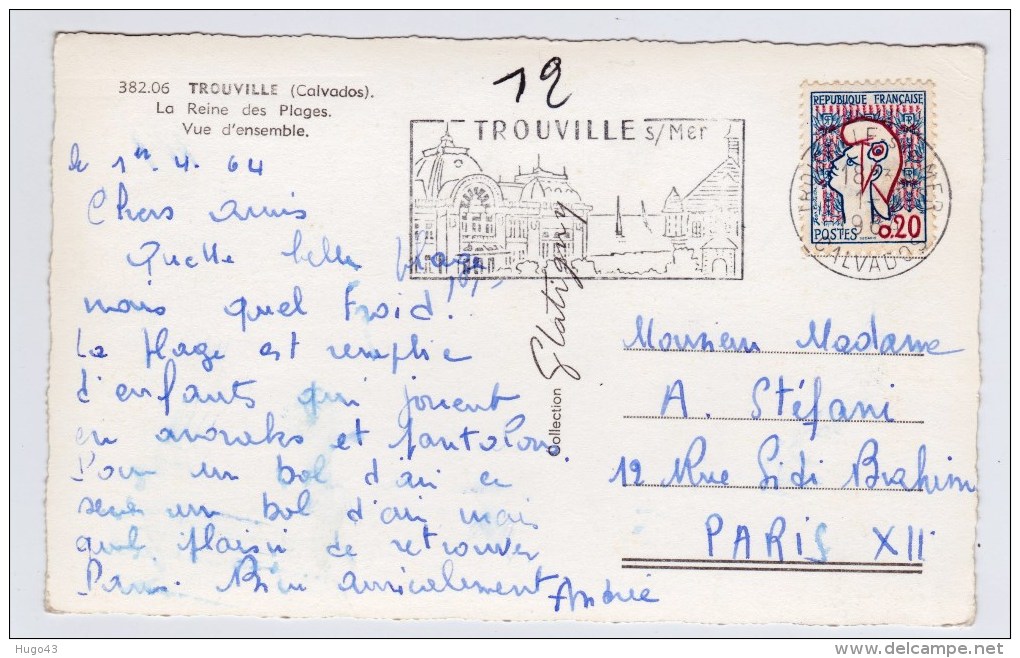 382.06 TROUVILLE (Calvados).
La Reine des Plages.
Vue d'ensemble.
12
TROUVILLE s/Mer
REPUBLIQUE FRANÇAISE
POSTES 0.20
CALVADOS
le 1er. 4. 64
Chers amis
Quelle belle plage
mais quel froid!
La plage est remplie
d'enfants qui jouent
en anoraks et pantalons.
Pour un bol d'air ce
sera un bol d'air mais
quel plaisir de retrouver
Paris. Bien amicalement
Andrée
Collection Glatigny
Monsieur Madame
A. Stéfani
12 Rue Sidi Brahim
PARIS XII
Hugo43
delcampe.net